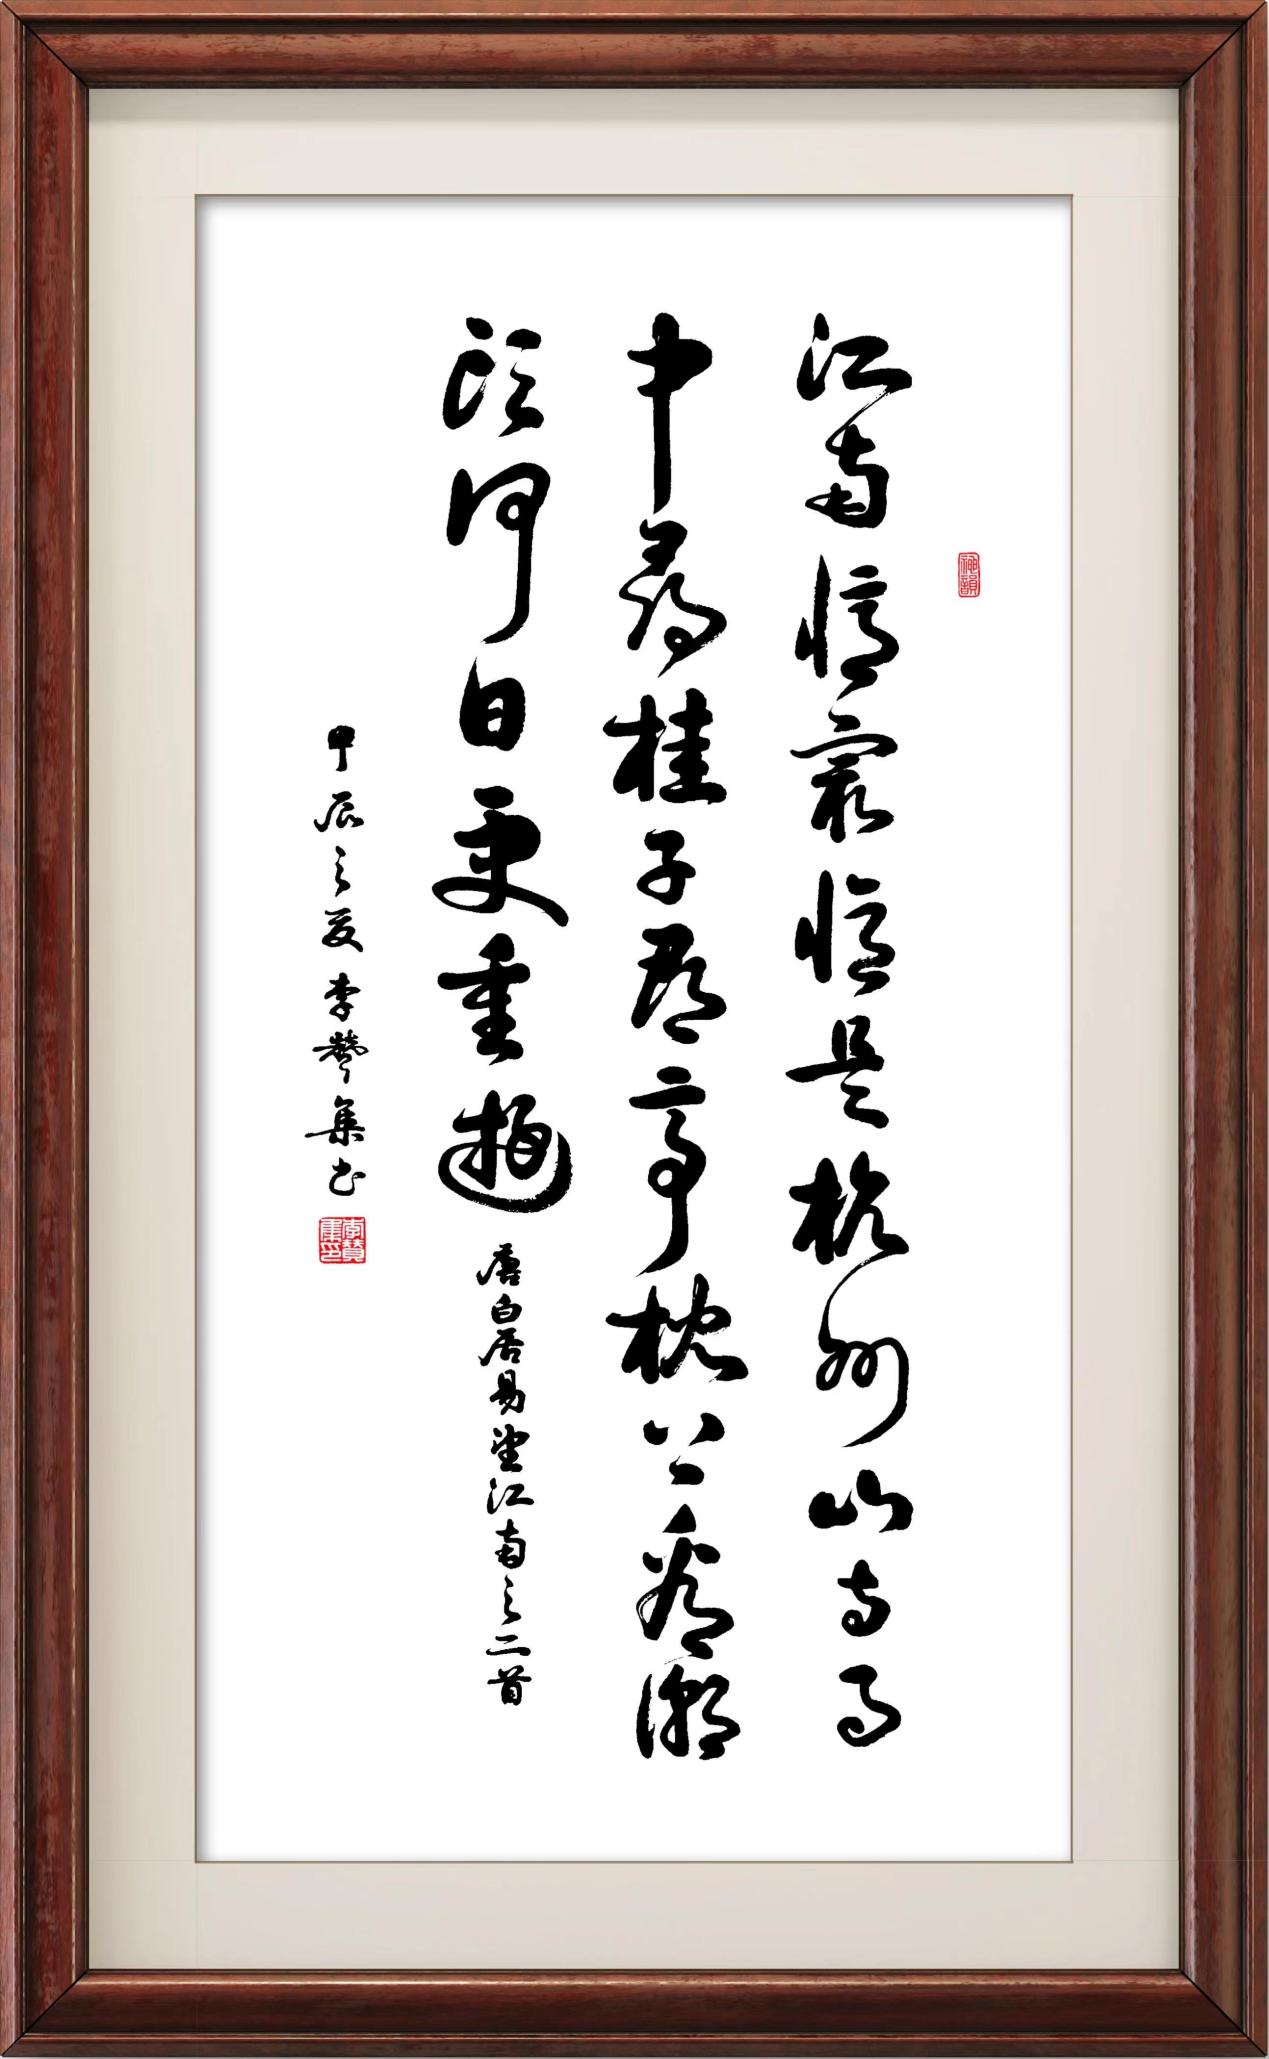 江南憶最憶是杭州山寺月
中尋桂子郡亭枕上看潮
頭何日更重遊
唐白居易望江南之二首
甲辰之夏李贊集書
神韻
李贊軍印